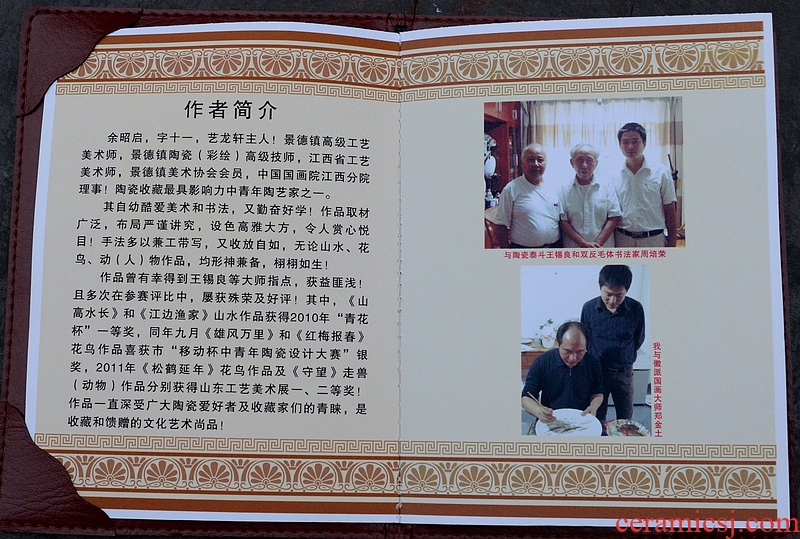 作者简介
余昭启，字十一，艺龙轩主人！景德镇高级工艺
美术师，景德镇陶瓷（彩绘）高级技师，江西省工艺
美术师，景德镇美术协会会员，中国国画院江西分院
理事！陶瓷收藏最具影响力中青年陶艺家之一。
其自幼酷爱美术和书法，又勤奋好学！作品取材
广泛，布局严谨讲究，设色高雅大方，令人赏心悦
目！手法多以兼工带写，又收放自如，无论山水、花
鸟、动（人）物作品，均形神兼备，栩栩如生！
作品曾有幸得到王锡良等大师指点，获益匪浅！
且多次在参赛评比中，屡获殊荣及好评！其中，《山
高水长》和《江边渔家》山水作品获得2010年“青花
杯”一等奖，同年九月《雄风万里》和《红梅报春》
花鸟作品喜获市“移动杯中青年陶瓷设计大赛”银
奖，2011年《松鹤延年》花鸟作品及《守望》走兽
（动物）作品分别获得山东工艺美术展一、二等奖！
作品一直深受广大陶瓷爱好者及收藏家们的青睐，是
收藏和馈赠的文化艺术尚品！
与陶瓷泰斗王锡良和双反毛体书法家周培荣
我与徽派国画大师郑金土
ceramicsj.com